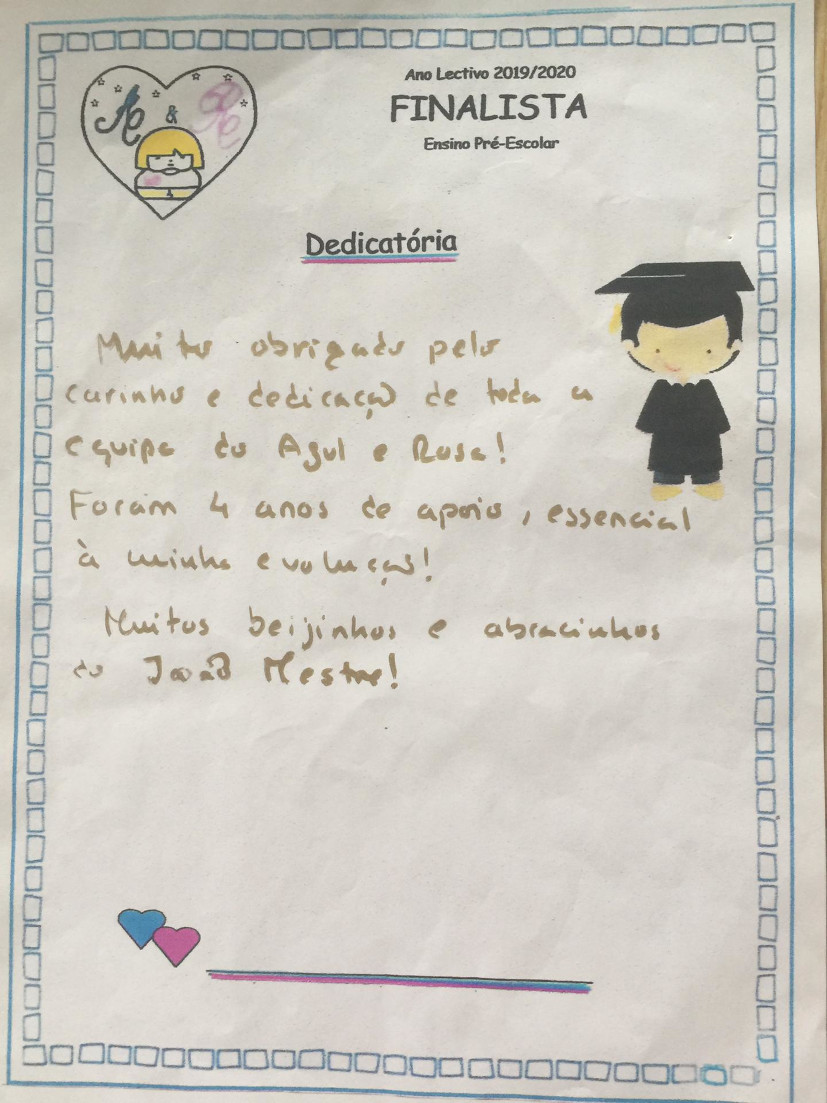 Ano Lectivo 2019/2020
FINALISTA
Ensino Pré-Escolar
A & R
Dedicatória
Muito obrigado pelo
carinho e dedicação de toda a
equipa do Azul e Rosa!
Foram 4 anos de apoio, essencial
à minha evolução!
Muitos beijinhos e abracinhos
do João Mestre!